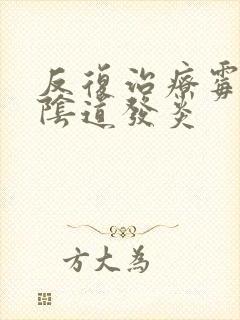 反復治療霉
陰道發炎
方大為